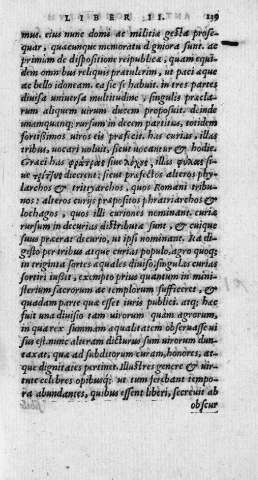 LIBER II. 139
mus. eius nunc domi ac militiæ gesta prose-
quar, quæcunque memoratu digniora sunt. ac
primum de dispositione reipublicæ, quam equi-
dem omnibus reliquis prætulerim, ut paci æque
ac bello idoneam. ea sic se habuit. in tres partes
diuisa uniuersa multitudine, singulis præcla-
rum aliquem uirum ducem præposuit. deinde
unamquanq; rursum in decem partitus, totidem
fortissimos uiros eis præfecit. has curias, illas
tribus, uocari uoluit, sicut uocantur & hodie.
Græci has φράτρας siue λόχους, illas φυλὰς si-
ue τριττῦας dicerent: sicut præfectos alteros phy-
larchos & trittyarchos, quos Romani tribu-
nos: alteros curijs præpositos phratriarchos &
lochagos, quos illi curiones nominant. curiæ
rursum in decurias distributæ sunt, & cuique
suus præerat decurio, ut ipsi nominant. Ita di-
gesto per tribus atque curias populo, agro quoq;
in triginta sortes æquales diuiso, singulas curias
sortiri iussit, excepto prius quantum in mini-
sterium sacrorum ac templorum sufficeret, &
quadam parte quæ esset iuris publici. atq; hæc
fuit una diuisio tam uirorum quàm agrorum,
in qua rex summam æqualitatem obseruasse ui
sus est. nunc alteram dicturus sum uirorum dun
taxat, quæ ad subditorum curam, honores, at-
que dignitates pertinet. Illustres genere & uir-
tute celibres opibusq; ut tum ferebant tempo-
ra abundantes, quibus essent liberi, secreuit ab
obscur